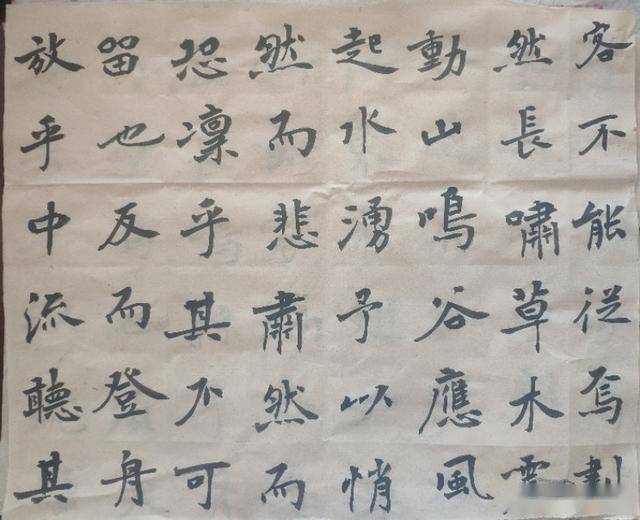 客不能從焉劃
然長嘯草木震
動山鳴谷應風
起水湧予以悄
然而悲肅然而
恐凜乎其不可
留也反而登舟
放乎中流聽其